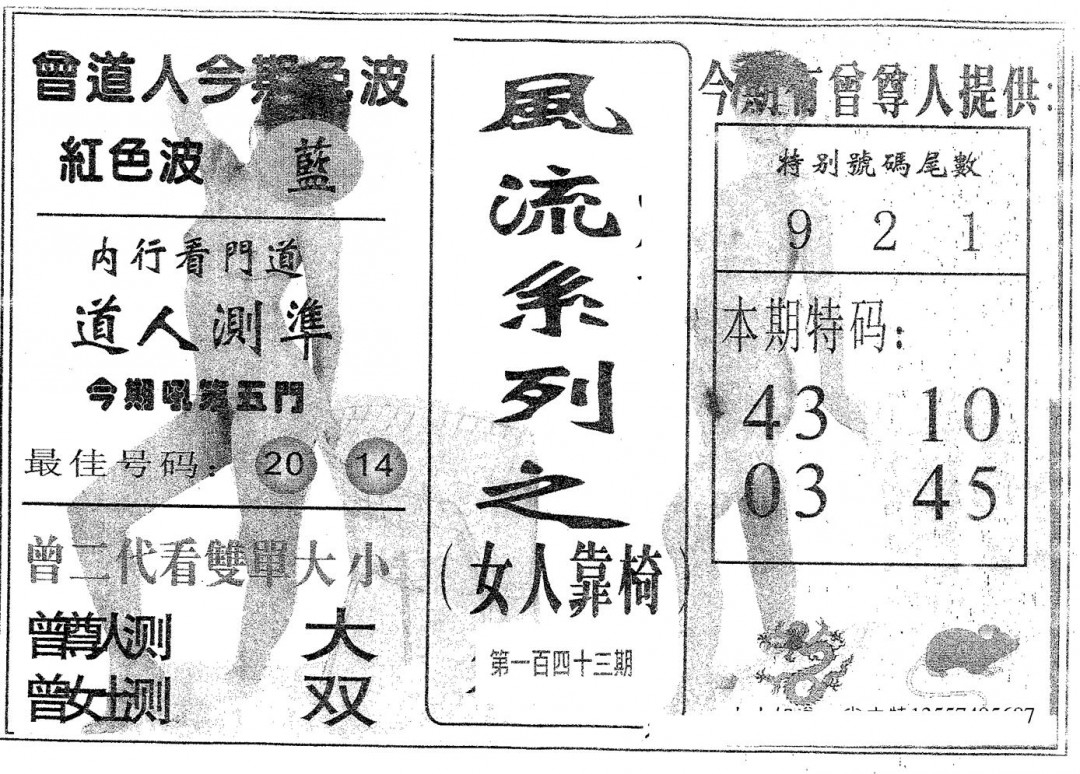 曾道人今期色波
紅色波 藍
内行看門道
道人測準
今期吼第五門
最佳号码: 20 14
曾二代看雙單大小
曾尊人测 大
曾女士测 双
風流系列之
(女人靠椅)
第一百四十三期
今期有曾尊人提供:
特别號碼尾數
9 2 1
本期特码:
43 10
03 45